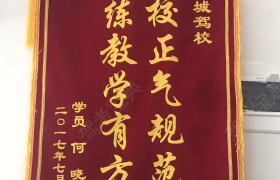 城驾校
校正气规范
练教学有方
学员 何晓
二〇一七年七月